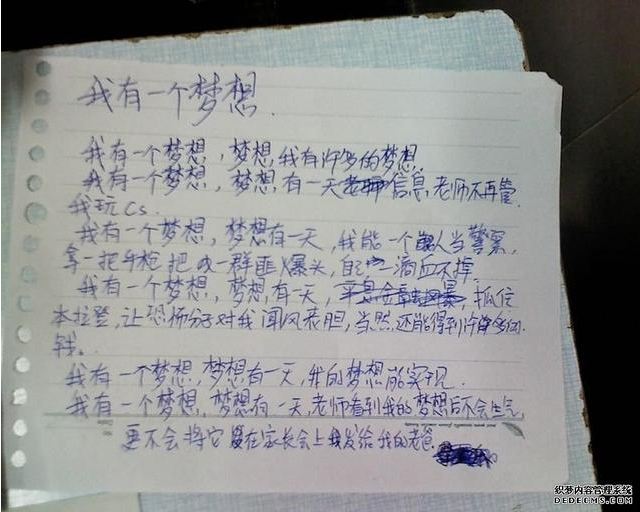 我有一个梦想.
我有一个梦想,梦想我有许多的梦想.
我有一个梦想,梦想有一天信息老师不再管
我玩Cs.
我有一个梦想,梦想有一天,我能一个人当警察,
拿一把手枪把成一群匪爆头,自己一滴血不掉.
我有一个梦想,梦想有一天,抓住
本拉登,让恐怖分子对我闻风丧胆,当然,还能得到许多的
钱。
我有一个梦想,梦想有一天,我的梦想能实现.
我有一个梦想,梦想有一天,老师看到我的梦想后不会生气,
更不会将它在家长会上发给我的老爸.
织梦内容管理系统
DEDECMS.COM